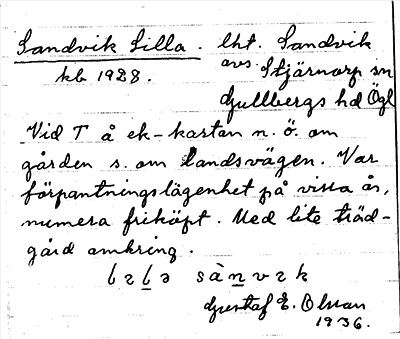 Sandvik Lilla. lht. Sandvik
kb 1928. avs. Stjärnorp sn
Gullbergs hd Ögl
Vid T å ek-kartan n. ö. om
gården s. om landsvägen. Var
förpantningslägenhet på vissa år,
numera friköpt. Med lite träd-
gård omkring.
sànvɛk
Gustaf E. Olsson
1936.